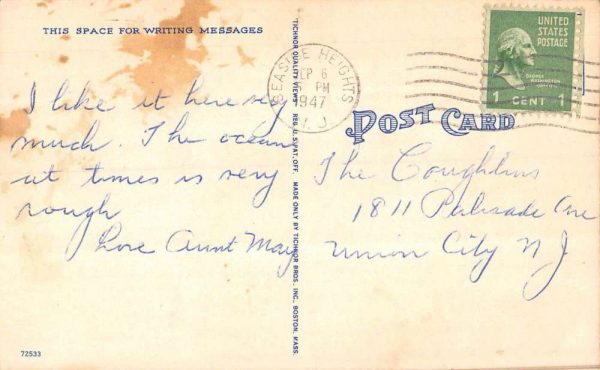 THIS SPACE FOR WRITING MESSAGES
I like it here very
much. The ocean
at times is very
rough
Love Aunt May
72533
TICHNOR QUALITY VIEWS REG. U.S. PAT. OFF. MADE ONLY BY TICHNOR BROS. INC., BOSTON, MASS.
SEASIDE HEIGHTS
SEP 6
PM
1947
N. J.
UNITED
STATES
POSTAGE
GEORGE
WASHINGTON
1 CENT 1
POST CARD
The Coughlins
1811 Palisade Ave
Union City N J